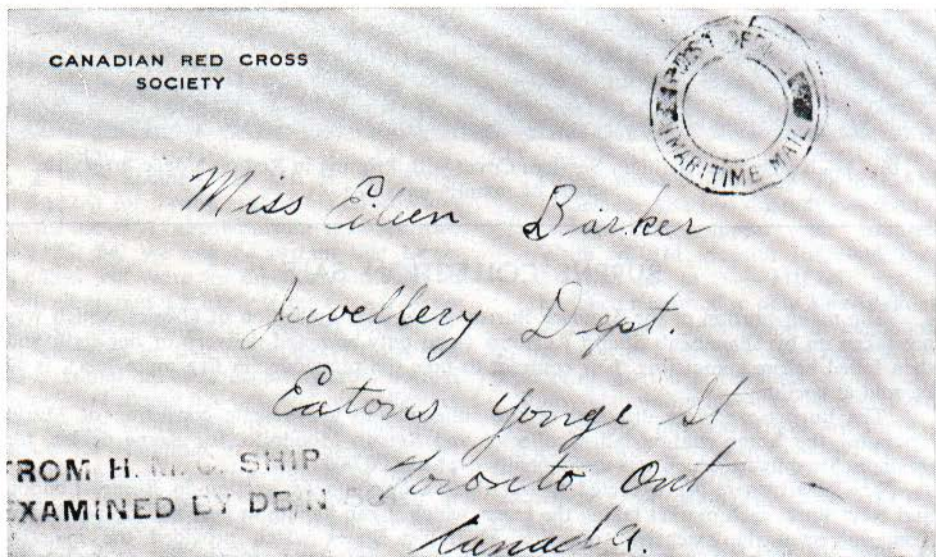 CANADIAN RED CROSS
SOCIETY
POST OFFICE
MARITIME MAIL
Miss Eileen Barker
Jewellery Dept.
Eatons Yonge St
Toronto Ont
Canada.
FROM H.M.C. SHIP
EXAMINED BY DB/N